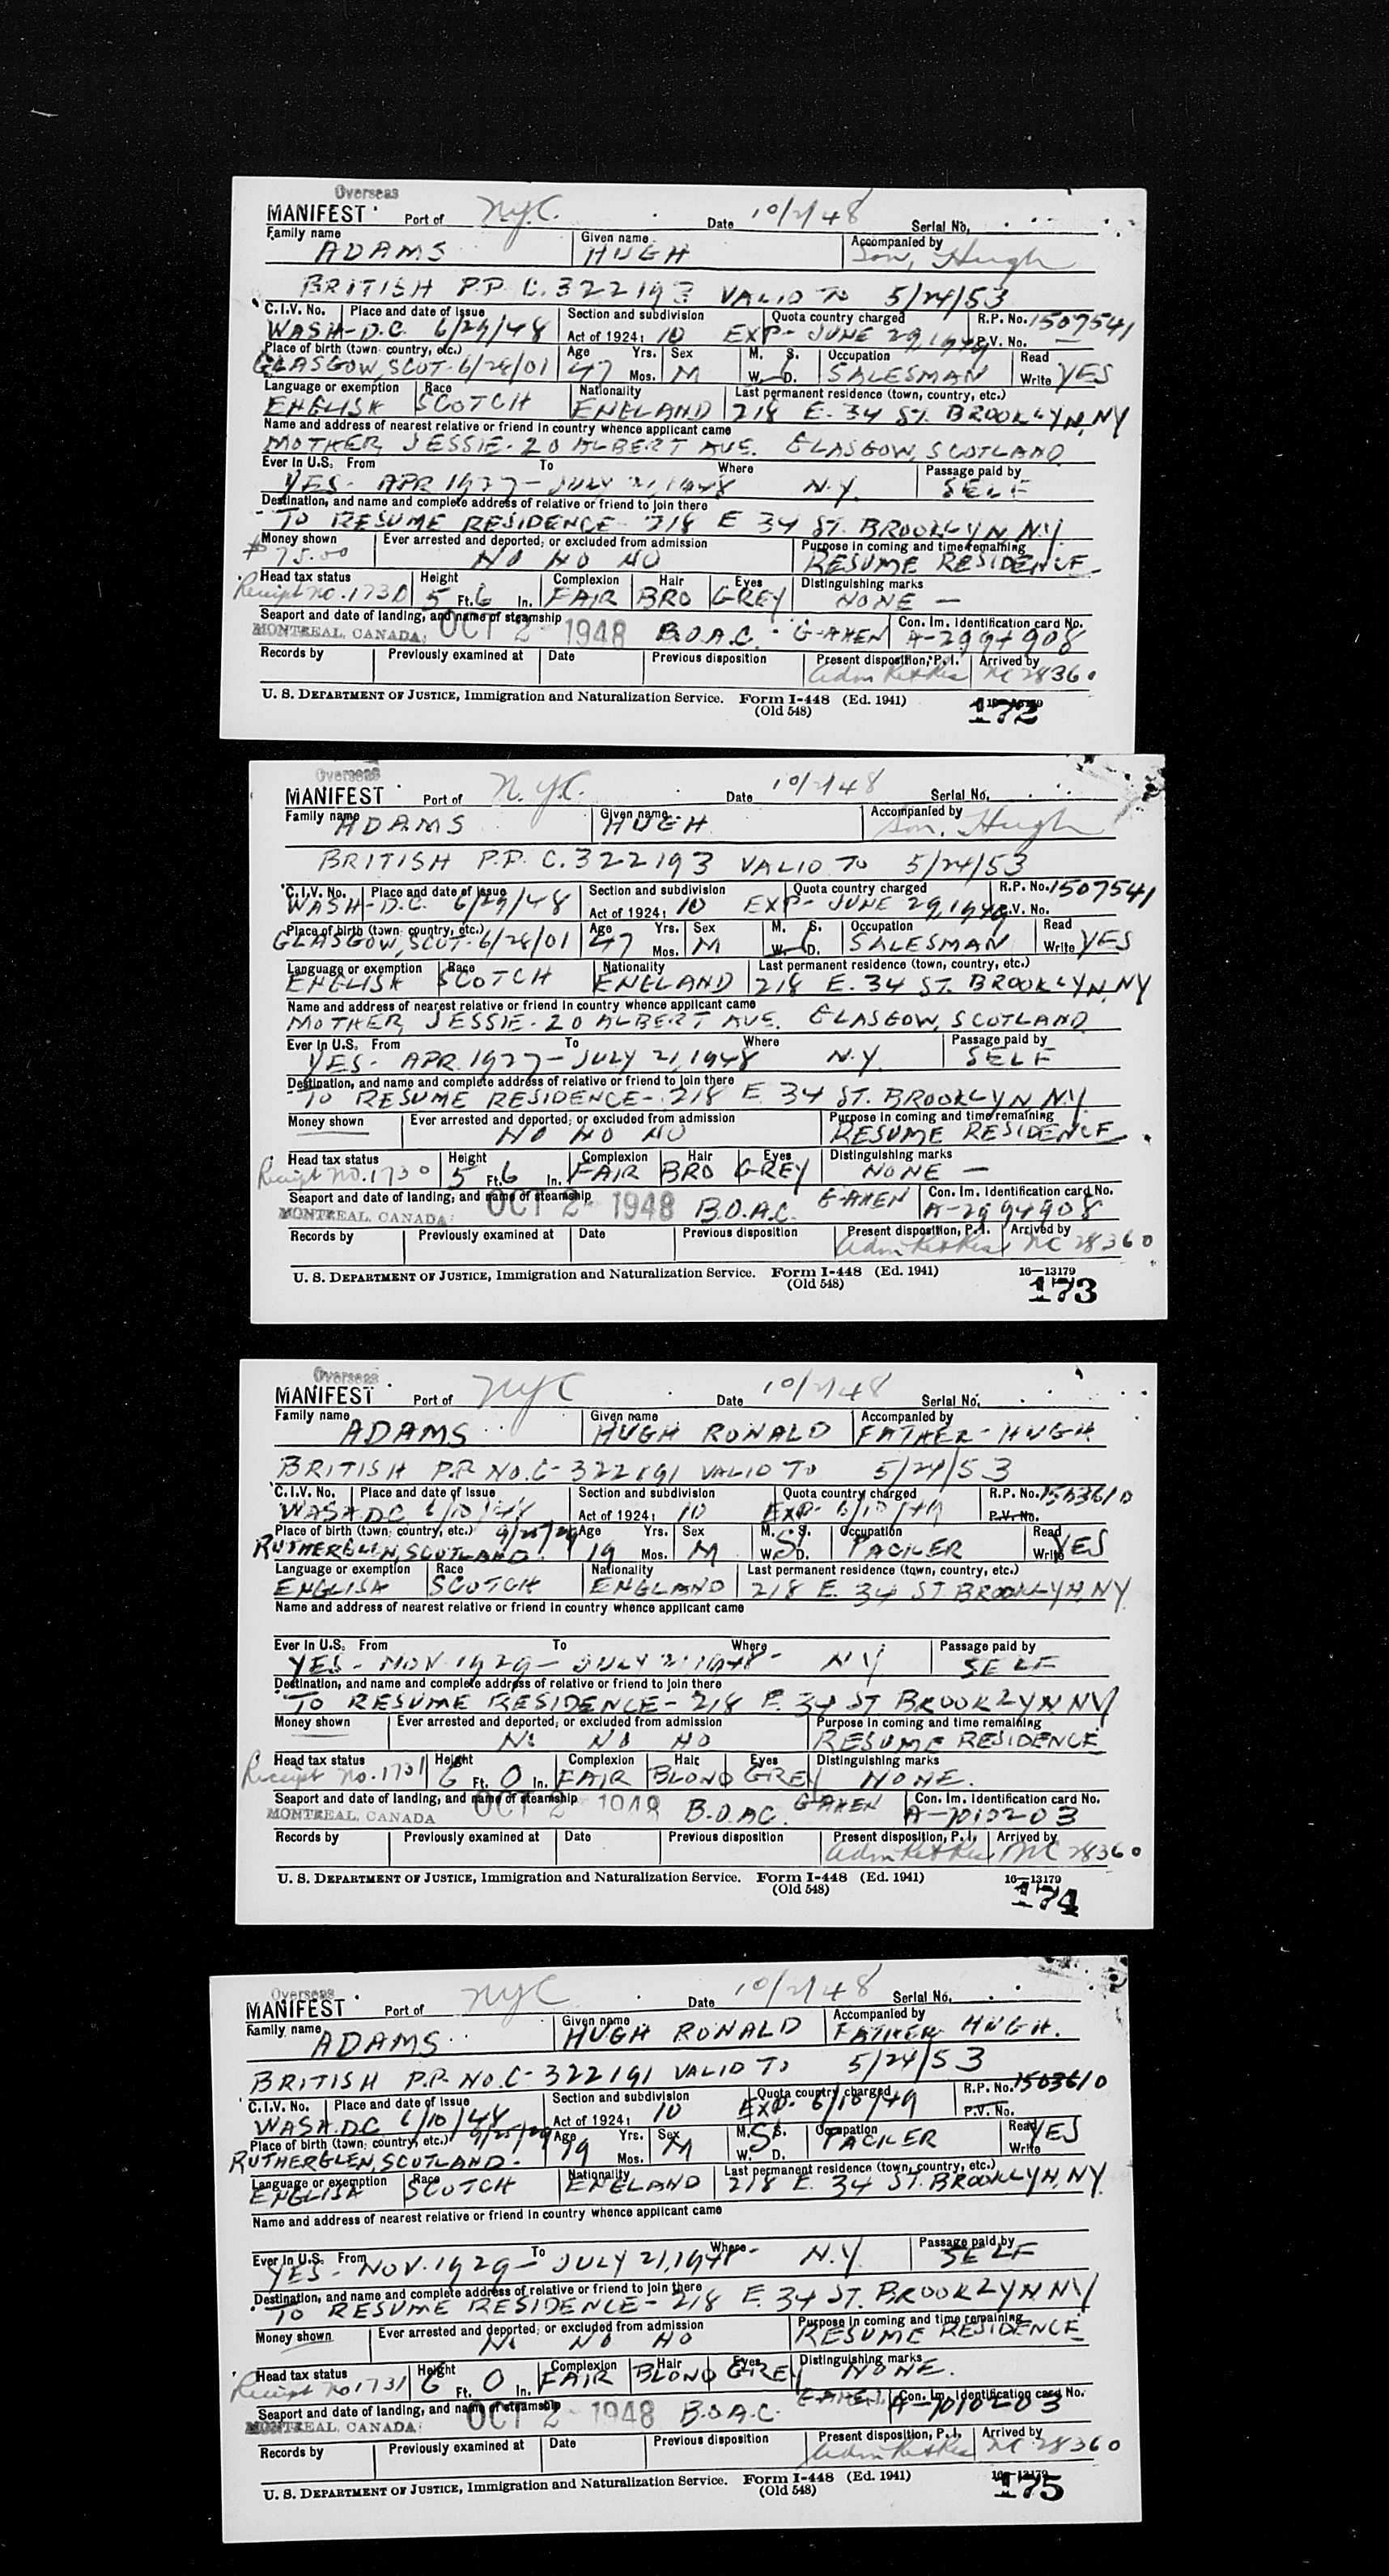 Overseas
MANIFEST Port of NYC. Date 10/2/48 Serial No.
Family name ADAMS Given name HUGH Accompanied by Son, Hugh
BRITISH P.P. C. 322193 VALID TO 5/24/53
C.I.V. No. Place and date of issue Section and subdivision Quota country charged R.P. No. 1507541
WASH-D.C. 6/29/48 Act of 1924: 10 EXP- JUNE 29, 1949 P.V. No.
Place of birth (town, country, etc.) Age Yrs. Sex M. S. Occupation Read
GLASGOW, SCOT. 6/28/01 47 Mos. M W. D. SALESMAN Write YES
Language or exemption Race Nationality Last permanent residence (town, country, etc.)
ENGLISH SCOTCH ENGLAND 218 E. 34 ST. BROOKLYN, NY
Name and address of nearest relative or friend in country whence applicant came
MOTHER, JESSIE - 20 ALBERT AVE. GLASGOW, SCOTLAND
Ever in U.S. From To Where Passage paid by
YES - APR 1927 - JULY 21, 1948 N.Y. SELF
Destination, and name and complete address of relative or friend to join there
TO RESUME RESIDENCE - 218 E 34 ST. BROOKLYN N.Y.
Money shown Ever arrested and deported, or excluded from admission Purpose in coming and time remaining
$75.00 NO NO NO RESUME RESIDENCE
Head tax status Height Complexion Hair Eyes Distinguishing marks
Receipt no. 1730 5 Ft. 6 In. FAIR BRO GREY NONE —
Seaport and date of landing, and name of steamship Con. Im. Identification card No.
MONTREAL, CANADA: OCT 2 - 1948 B.O.A.C. - G-AHEN A-2994908
Records by Previously examined at Date Previous disposition Present disposition, P.I. Arrived by
NC 28360
U. S. DEPARTMENT OF JUSTICE, Immigration and Naturalization Service. Form I-448 (Ed. 1941)
(Old 548) 172
Overseas
MANIFEST Port of N.Y.C. Date 10/2/48 Serial No.
Family name ADAMS Given name HUGH Accompanied by Son, Hugh
BRITISH P.P. C. 322193 VALID TO 5/24/53
C.I.V. No. Place and date of issue Section and subdivision Quota country charged R.P. No. 1507541
WASH-D.C. 6/29/48 Act of 1924: 10 EXP- JUNE 29, 1949 P.V. No.
Place of birth (town, country, etc.) Age Yrs. Sex M. S. Occupation Read
GLASGOW, SCOT. 6/28/01 47 Mos. M W. D. SALESMAN Write YES
Language or exemption Race Nationality Last permanent residence (town, country, etc.)
ENGLISH SCOTCH ENGLAND 218 E. 34 ST. BROOKLYN, NY
Name and address of nearest relative or friend in country whence applicant came
MOTHER, JESSIE - 20 ALBERT AVE. GLASGOW, SCOTLAND
Ever in U.S. From To Where Passage paid by
YES - APR. 1927 - JULY 21, 1948 N.Y. SELF
Destination, and name and complete address of relative or friend to join there
TO RESUME RESIDENCE - 218 E 34 ST. BROOKLYN N.Y.
Money shown Ever arrested and deported, or excluded from admission Purpose in coming and time remaining
NO NO NO RESUME RESIDENCE
Head tax status Height Complexion Hair Eyes Distinguishing marks
Receipt no. 1730 5 Ft. 6 In. FAIR BRO GREY NONE —
Seaport and date of landing, and name of steamship Con. Im. Identification card No.
MONTREAL, CANADA: OCT 2 - 1948 B.O.A.C. G-AHEN A-2994908
Records by Previously examined at Date Previous disposition Present disposition, P.I. Arrived by
NC 28360
U. S. DEPARTMENT OF JUSTICE, Immigration and Naturalization Service. Form I-448 (Ed. 1941) 16—13179
(Old 548) 173
Overseas
MANIFEST Port of NYC Date 10/2/48 Serial No.
Family name ADAMS Given name HUGH RONALD Accompanied by FATHER - HUGH
BRITISH P.P. NO. C- 322191 VALID TO 5/24/53
C.I.V. No. Place and date of issue Section and subdivision Quota country charged R.P. No. 1503610
WASH.D.C 6/10/48 Act of 1924: 10 EXP- 6/10/49 P.V. No.
Place of birth (town, country, etc.) 9/25/29 Age Yrs. Sex M. S. Occupation Read
RUTHERGLEN, SCOTLAND. 19 Mos. M W. D. PACKER Write YES
Language or exemption Race Nationality Last permanent residence (town, country, etc.)
ENGLISH SCOTCH ENGLAND 218 E. 34 ST BROOKLYN, NY
Name and address of nearest relative or friend in country whence applicant came
Ever in U.S. From To Where Passage paid by
YES - NOV. 1929 - JULY 21, 1948 - NY SELF
Destination, and name and complete address of relative or friend to join there
TO RESUME RESIDENCE - 218 E. 34 ST BROOKLYN NY
Money shown Ever arrested and deported, or excluded from admission Purpose in coming and time remaining
NO NO NO RESUME RESIDENCE
Head tax status Height Complexion Hair Eyes Distinguishing marks
Receipt no. 1731 6 Ft. 0 In. FAIR BLOND GREY NONE.
Seaport and date of landing, and name of steamship Con. Im. Identification card No.
MONTREAL, CANADA OCT 2 - 1948 B.O.AC. G-AHEN A-7010203
Records by Previously examined at Date Previous disposition Present disposition, P.I. Arrived by
NC 28360
U. S. DEPARTMENT OF JUSTICE, Immigration and Naturalization Service. Form I-448 (Ed. 1941) 16—13179
(Old 548) 174
Overseas
MANIFEST Port of NYC Date 10/2/48 Serial No.
Family name ADAMS Given name HUGH RONALD Accompanied by FATHER HUGH.
BRITISH P.P. NO. C- 322191 VALID TO 5/24/53
C.I.V. No. Place and date of issue Section and subdivision Quota country charged R.P. No. 1503610
WASH.D.C 6/10/48 Act of 1924: 10 EXP- 6/10/49 P.V. No.
Place of birth (town, country, etc.) 9/25/29 Age Yrs. Sex M. S. Occupation Read
RUTHERGLEN, SCOTLAND. 19 Mos. M W. D. PACKER Write YES
Language or exemption Race Nationality Last permanent residence (town, country, etc.)
ENGLISH SCOTCH ENGLAND 218 E. 34 ST. BROOKLYN, NY
Name and address of nearest relative or friend in country whence applicant came
Ever in U.S. From To Where Passage paid by
YES - NOV. 1929 - JULY 21, 1948 - N.Y. SELF
Destination, and name and complete address of relative or friend to join there
TO RESUME RESIDENCE - 218 E. 34 ST. BROOKLYN NY
Money shown Ever arrested and deported, or excluded from admission Purpose in coming and time remaining
NO NO NO RESUME RESIDENCE
Head tax status Height Complexion Hair Eyes Distinguishing marks
Receipt no 1731 6 Ft. 0 In. FAIR BLOND GREY NONE.
Seaport and date of landing, and name of steamship Con. Im. Identification card No.
MONTREAL, CANADA: OCT 2 - 1948 B.O.A.C. G-AHEN A-7010203
Records by Previously examined at Date Previous disposition Present disposition, P.I. Arrived by
NC 28360
U. S. DEPARTMENT OF JUSTICE, Immigration and Naturalization Service. Form I-448 (Ed. 1941) 16—13179
(Old 548) 175